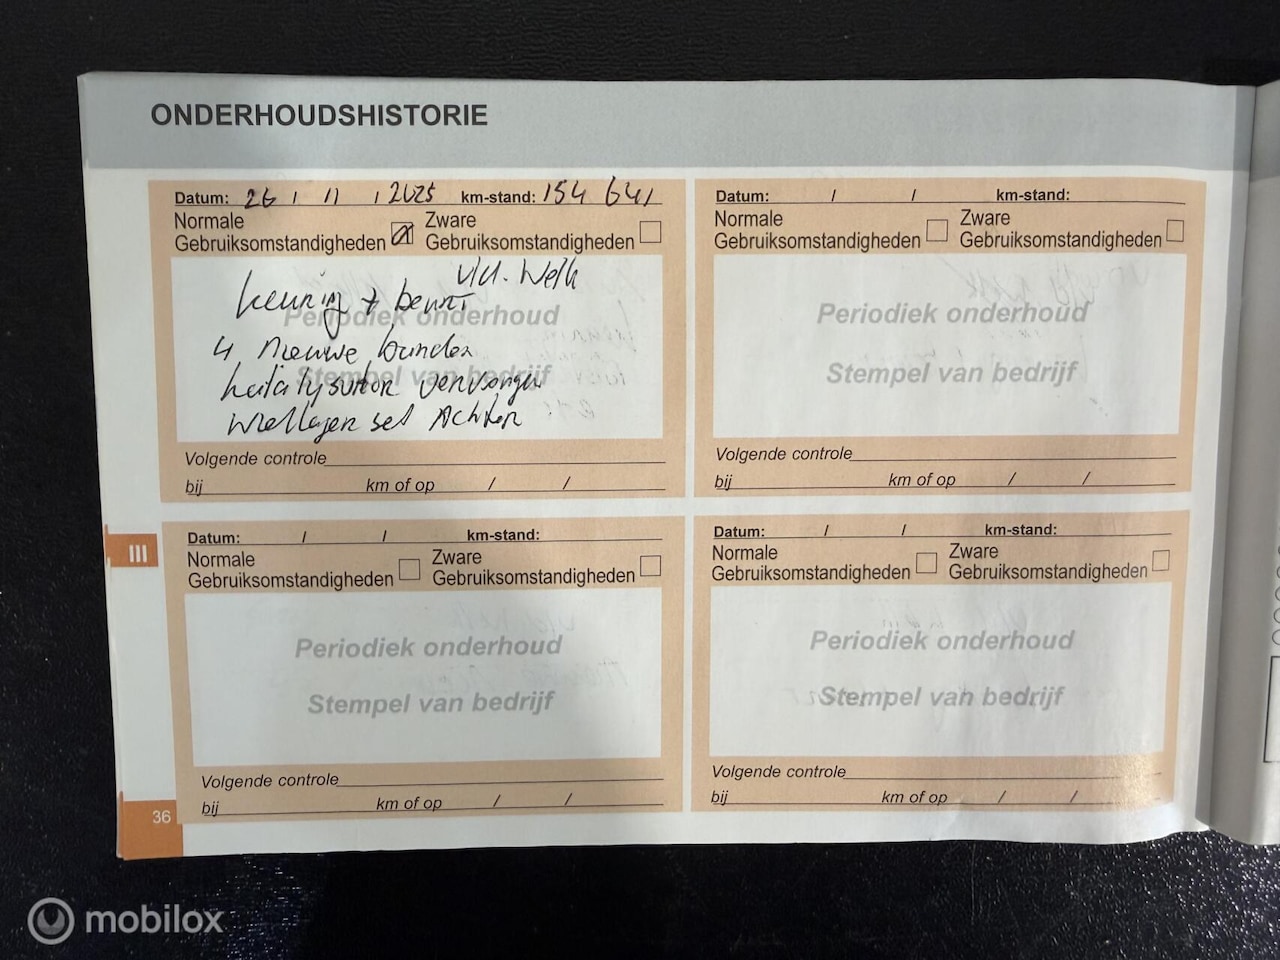 ONDERHOUDSHISTORIE
Datum: 26 / 11 / 2025 km-stand: 154 641
Normale Gebruiksomstandigheden
Zware Gebruiksomstandigheden
keuring + beurt
4 nieuwe banden
katalysator vervangen
wiellager set Achter
Periodiek onderhoud
Stempel van bedrijf
Volgende controle
bij km of op / /
Datum: / / km-stand:
Normale Gebruiksomstandigheden
Zware Gebruiksomstandigheden
Periodiek onderhoud
Stempel van bedrijf
Volgende controle
bij km of op / /
III
Datum: / / km-stand:
Normale Gebruiksomstandigheden
Zware Gebruiksomstandigheden
Periodiek onderhoud
Stempel van bedrijf
Volgende controle
bij km of op / /
Datum: / / km-stand:
Normale Gebruiksomstandigheden
Zware Gebruiksomstandigheden
Periodiek onderhoud
Stempel van bedrijf
Volgende controle
bij km of op / /
36
mobilox